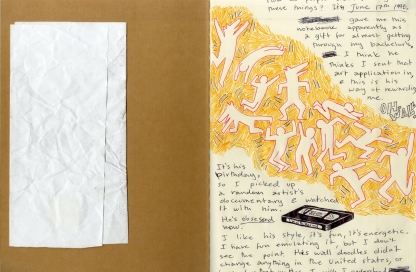 these things? It's June 17th 1990,
gave me this
notebook apparently as
a gift for almost getting
through my bachelor's
I think he
thinks I sent that
art application in
& this is his
way of rewarding
me.
It's his
birthday,
so I picked up
a random artist's
documentary & watched
it with him.
He's obsessed
now.
I like his style, it's fun, it's energetic.
I have fun emulating it, but I don't
see the point. His wall doodles didn't
change anything in the United States, or